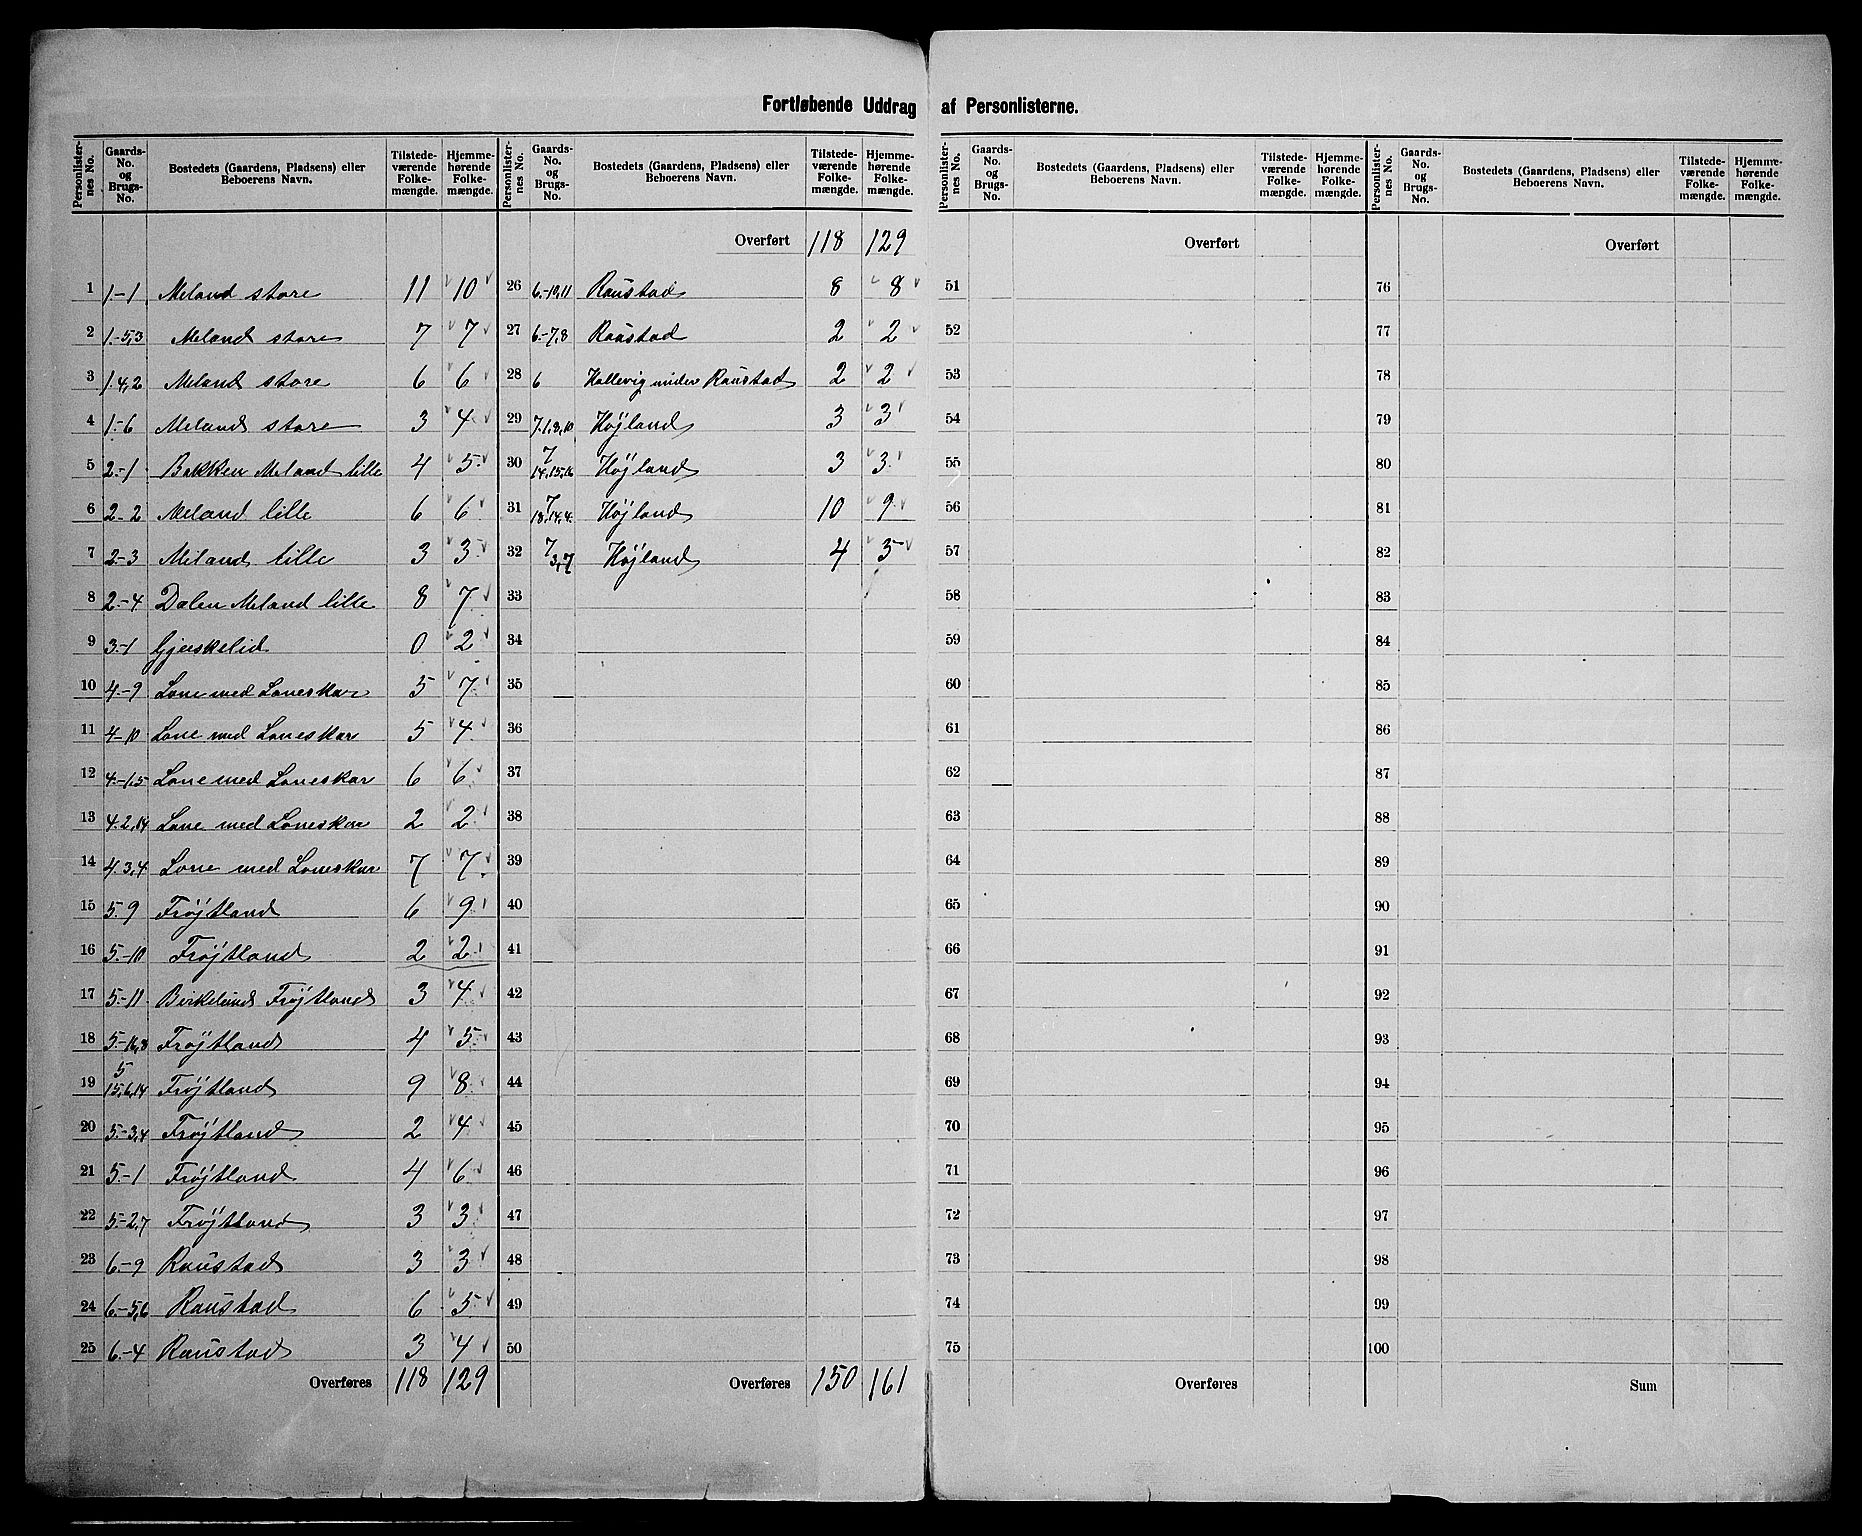 Fortløbende Uddrag af Personlisterne.
Personlister-nes No. | Gaards-No. og Brugs-No. | Bostedets (Gaardens, Pladsens) eller Beboerens Navn. | Tilstede-værende Folke-mængde. | Hjemme-hørende Folke-mængde.
1 | 1-1 | Meland store | 11 | 10
2 | 1-5,3 | Meland store | 7 | 7
3 | 1.4,2 | Meland store | 6 | 6
4 | 1-6 | Meland store | 3 | 4
5 | 2-1 | Bakken Meland lille | 4 | 5
6 | 2-2 | Meland lille | 6 | 6
7 | 2-3 | Meland lille | 3 | 3
8 | 2-4 | Dalen Meland lille | 8 | 7
9 | 3-1 | Gjerskelid | 0 | 2
10 | 4-9 | Lone med Loneskar | 5 | 7
11 | 4-10 | Lone med Loneskar | 5 | 4
12 | 4-1,5 | Lone med Loneskar | 6 | 6
13 | 4.2,14 | Lone med Loneskar | 2 | 2
14 | 4.3,4 | Lone med Loneskar | 7 | 7
15 | 5.9 | Frøjtland | 6 | 9
16 | 5-10 | Frøjtland | 2 | 2
17 | 5-11 | Birkelund Frøjtland | 3 | 4
18 | 5-16,8 | Frøjtland | 4 | 5
19 | 5 15,6,14 | Frøjtland | 9 | 8
20 | 5-3,4 | Frøjtland | 2 | 4
21 | 5-1 | Frøjtland | 4 | 6
22 | 5-2,7 | Frøjtland | 3 | 3
23 | 6-9 | Raustad | 3 | 3
24 | 6-5,6 | Raustad | 6 | 5
25 | 6-4 | Raustad | 3 | 4
Overføres 118 129
Personlister-nes No. | Gaards-No. og Brugs-No. | Bostedets (Gaardens, Pladsens) eller Beboerens Navn. | Tilstede-værende Folke-mængde. | Hjemme-hørende Folke-mængde.
Overført 118 129
26 | 6-10,11 | Raustad | 8 | 8
27 | 6-7,8 | Raustad | 2 | 2
28 | 6 | Hallevig under Raustad | 2 | 2
29 | 7.1,8,10 | Højland | 3 | 3
30 | 7 14,15,16 | Højland | 3 | 3
31 | 7 18,14,4 | Højland | 10 | 9
32 | 7 3,7 | Højland | 4 | 5
33
34
35
36
37
38
39
40
41
42
43
44
45
46
47
48
49
50
Overføres 150 161
Personlister-nes No. | Gaards-No. og Brugs-No. | Bostedets (Gaardens, Pladsens) eller Beboerens Navn. | Tilstede-værende Folke-mængde. | Hjemme-hørende Folke-mængde.
Overført
51
52
53
54
55
56
57
58
59
60
61
62
63
64
65
66
67
68
69
70
71
72
73
74
75
Overføres
Personlister-nes No. | Gaards-No. og Brugs-No. | Bostedets (Gaardens, Pladsens) eller Beboerens Navn. | Tilstede-værende Folke-mængde. | Hjemme-hørende Folke-mængde.
Overført
76
77
78
79
80
81
82
83
84
85
86
87
88
89
90
91
92
93
94
95
96
97
98
99
100
Sum